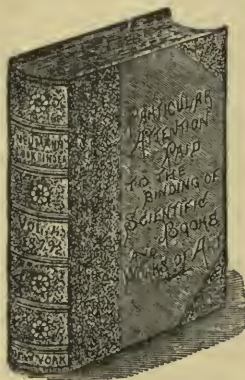 NEUMANN
BOOKBINDER
VOL.
NEW YORK
PARTICULAR
ATTENTION
PAID
TO THE
BINDING OF
SCIENTIFIC
BOOKS
AND
WORKS OF ART